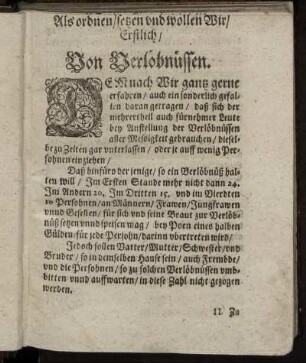 Als ordnen/setzen vnd wollen Wir/
Erstlich/
Von Verlöbnüssen.
DEMnach Wir gantz gerne
erfahren/auch ein sonderlich gefal-
len daran getragen/daß sich der
mehrertheil auch fürnehmer Leute
bey Anstellung der Verlöbnüssen
aller Mesigkeit gebrauchen/diesel-
be zu Zeiten gar vnterlassen/oder je auff wenig Per-
sohnen einziehen/
Daß hinfüro der jenige/so ein Verlöbnüß hal-
ten will/Im Ersten Stande mehr nicht dann 24.
Im Andern 20. Im Dritten 15. vnd im Vierdten
10 Persohnen/an Männern/Frawen/Jungfrawen
vnnd Gesellen/für sich vnd seine Braut zur Verlöb-
nüß setzen vnnd speisen mag/bey Poen eines halben
Gülden für jede Persohn/darinn vbertreten wird/
Jedoch sollen Vatter/Mutter/Schwester/vnd
Bruder/so in demselben Hause sein/auch Frembde/
vnd die Persohnen/so zu solchen Verlöbnüssen vmb-
bitten vnnd auffwarten/in diese Zahl nicht gezogen
werden.
11 Zu